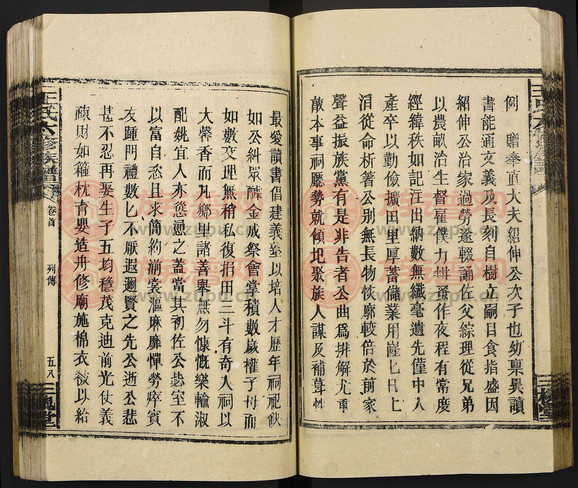 例贈奉直大夫紹伸公次子也幼稟異讀
書能通文義及長刻自樹立嗣目食指盛因
紹伸公治家過勞遂輟誦佐父綜理從兄弟
以農畝治生督雇僕力耕蚤作夜程有常度
經緯秩如記注出納數無纖毫遺先僅中人
產卒以勤儉擴田里厚蓄儲業用
涓從命析著公別無長物恢廓較倍於前家
聲益振族黨有是非告者公曲為排解尤重
敵本事祠廳勢就傾圯聚族人謀及補葺
最愛讀書倡建義塾以培人才歷年祠祀缺
如公糾眾醵金成祭會掌積數歲權子母而
如數交理無稍私復捐田三斗有奇人祠以
大馨香而凡鄉里諸善舉無勿慷慨樂輸淑
配姚宜人亦慫惥之蓋當其初佐公懃室不
以富自恣且求簡約澣裳漚麻靡憚勞瘁賓
友踵門禮數匕不厭遐邇賢之先公逝公悲
甚不忍再娶生子五均穩茂克迪前光仗義
疎財如籬枕育嬰造舟修廟施棉衣
王氏六修族譜
卷首
列傳
五八
三槐堂